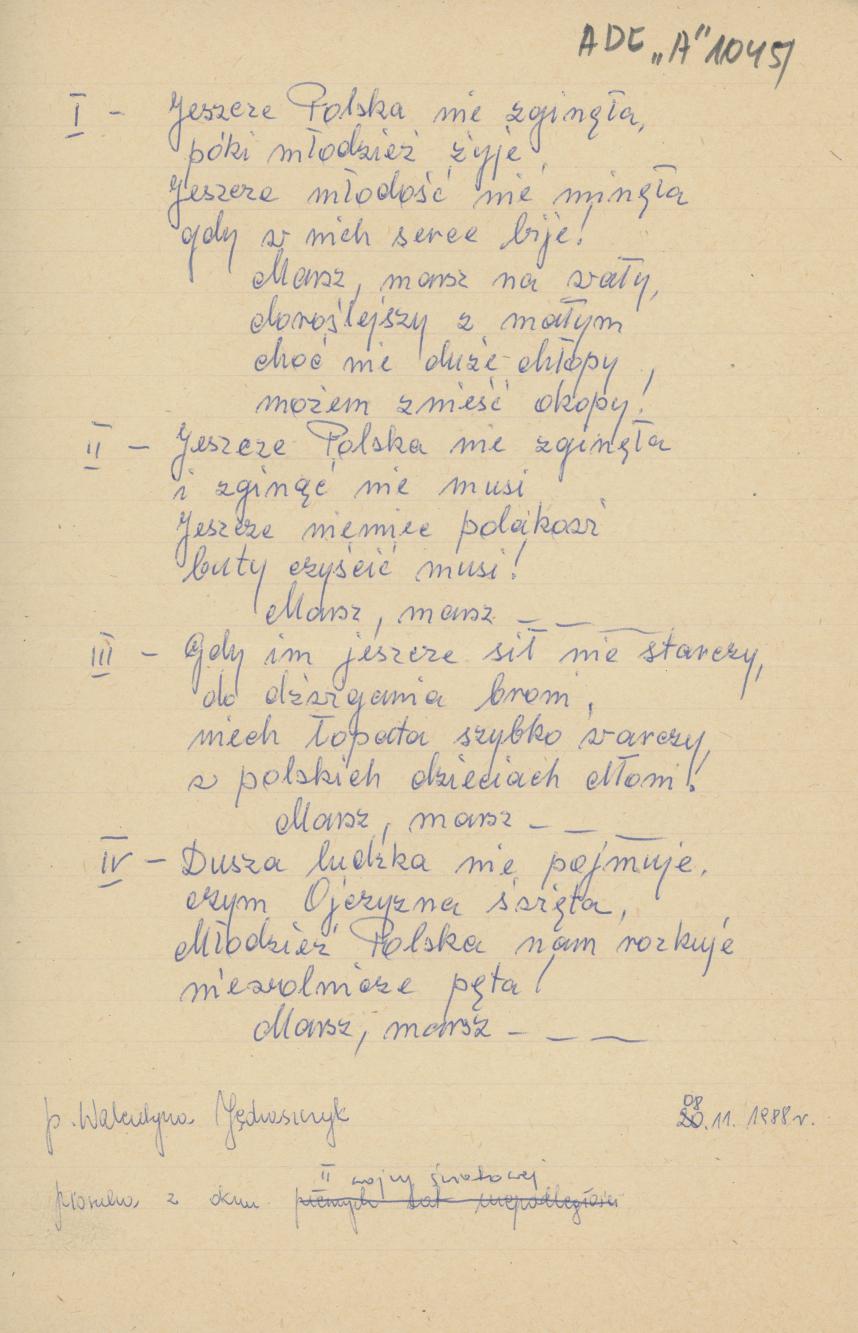 ADE „A" 1045/
I - Jeszcze Polska nie zginęła,
póki młodzież żyje,
Jeszcze młodość nie minęła
gdy w nich serce bije!
Marsz, marsz na wały,
doroślejszy z małym
choć nie duże chłopy,
możem znieść okopy!
II - Jeszcze Polska nie zginęła
i zginąć nie musi
Jeszcze niemiec polakowi
buty czyścić musi!
Marsz, marsz _ _ _
III - Gdy im jeszcze sił nie starczy,
do dźwigania broni,
niech łopata szybko warczy,
w polskich dzieciach dłoni!
Marsz, marsz - _ _
IV - Dusza ludzka nie pojmuje,
czym Ojczyzna święta,
Młodzież Polska nam rozkuje
niewolnicze pęta!
Marsz, marsz - _ _
p. Walentyna Jędraszczyk 08.11.1988 r.
II wojny światowej
piosenka z okresu późnych lat niepodległości